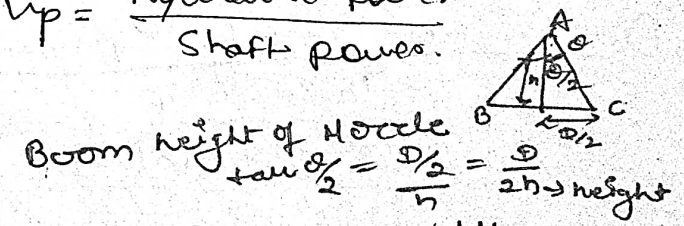 ηp =
Shaft power.
A
θ
h θ/2
B C
D/2
Boom height of Nozzle
tan θ/2 = D/2 / h = D / 2h → height